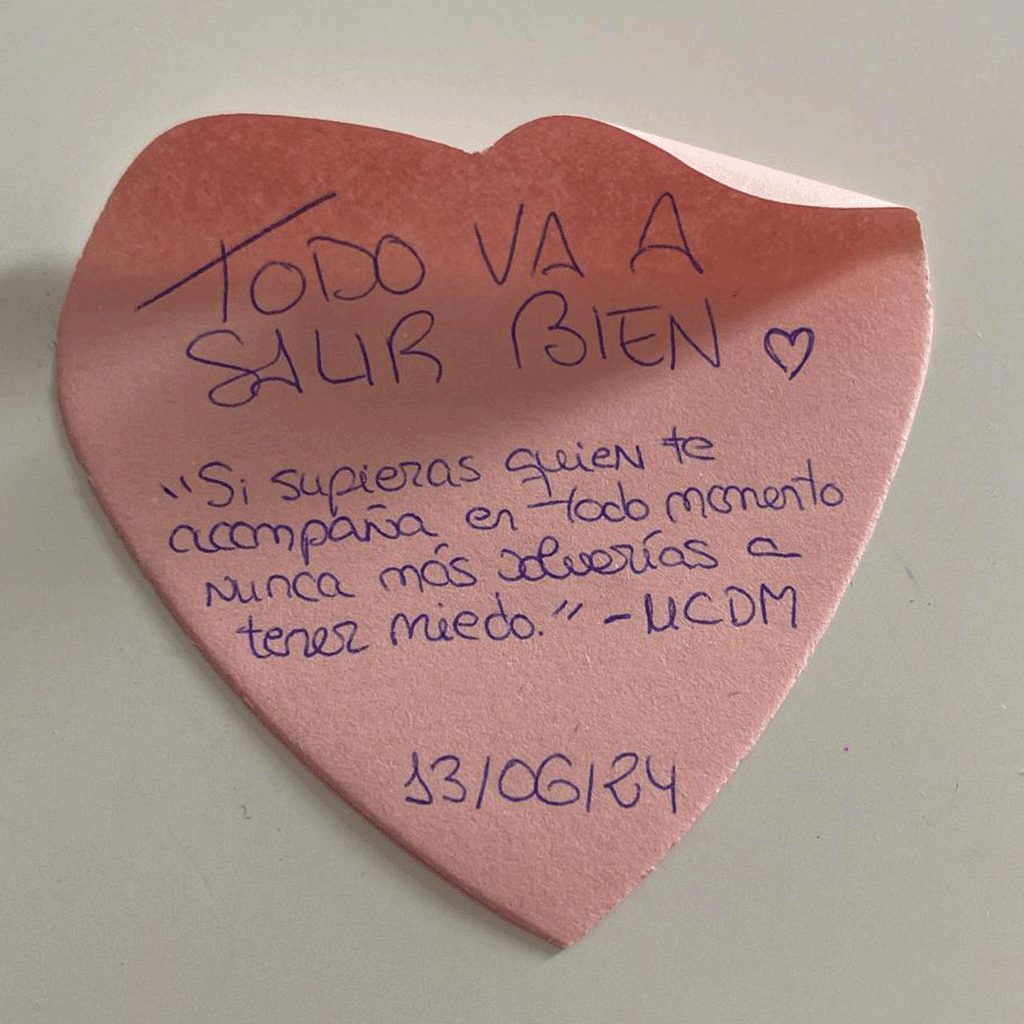 TODO VA A
SALIR BIEN ♡
"Si supieras quien te
acompaña en todo momento
nunca más volverías a
tener miedo." - UCDM
13/06/24